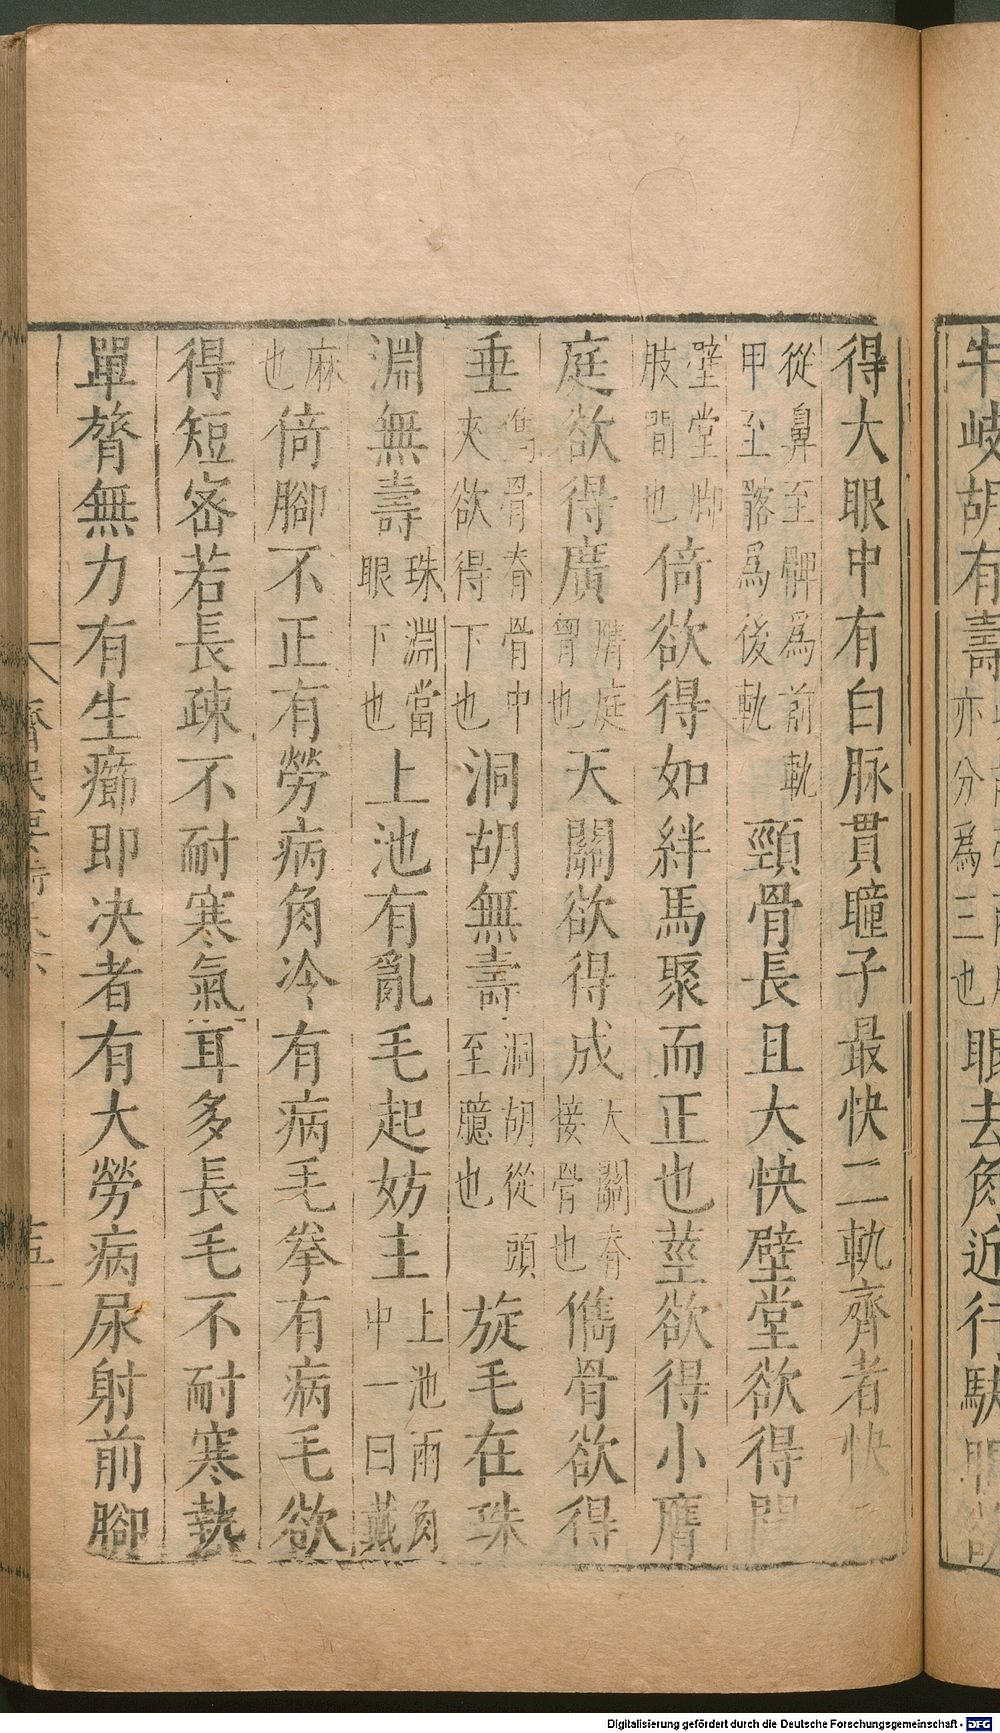 牛岐胡有壽
亦分為三也
眼去角近行駃
得大眼中有白脉貫瞳子最快二軌齊者快
從鼻至髀為前軌
甲至髂為後軌
頸骨長且大快壁堂欲得闊
壁堂脚
肢間也
倚欲得如絆馬聚而正也莖欲得小膺
庭欲得廣
膺庭
胷也
天關欲得成
大關脊
接骨也
儁骨欲得
垂
儁骨脊骨中
夾欲得下也
洞胡無壽
洞胡從頭
至臆也
旋毛在珠
淵無壽
珠淵當
眼下也
上池有亂毛起妨主
上池雨角
中一曰戴
麻
也
倚腳不正有勞病角冷有病毛拳有病毛欲
得短密若長疎不耐寒氣耳多長毛不耐寒熱
單膂無力有生癤即决者有大勞病尿射前腳
Digitalisierung gefördert durch die Deutsche Forschungsgemeinschaft - DFG